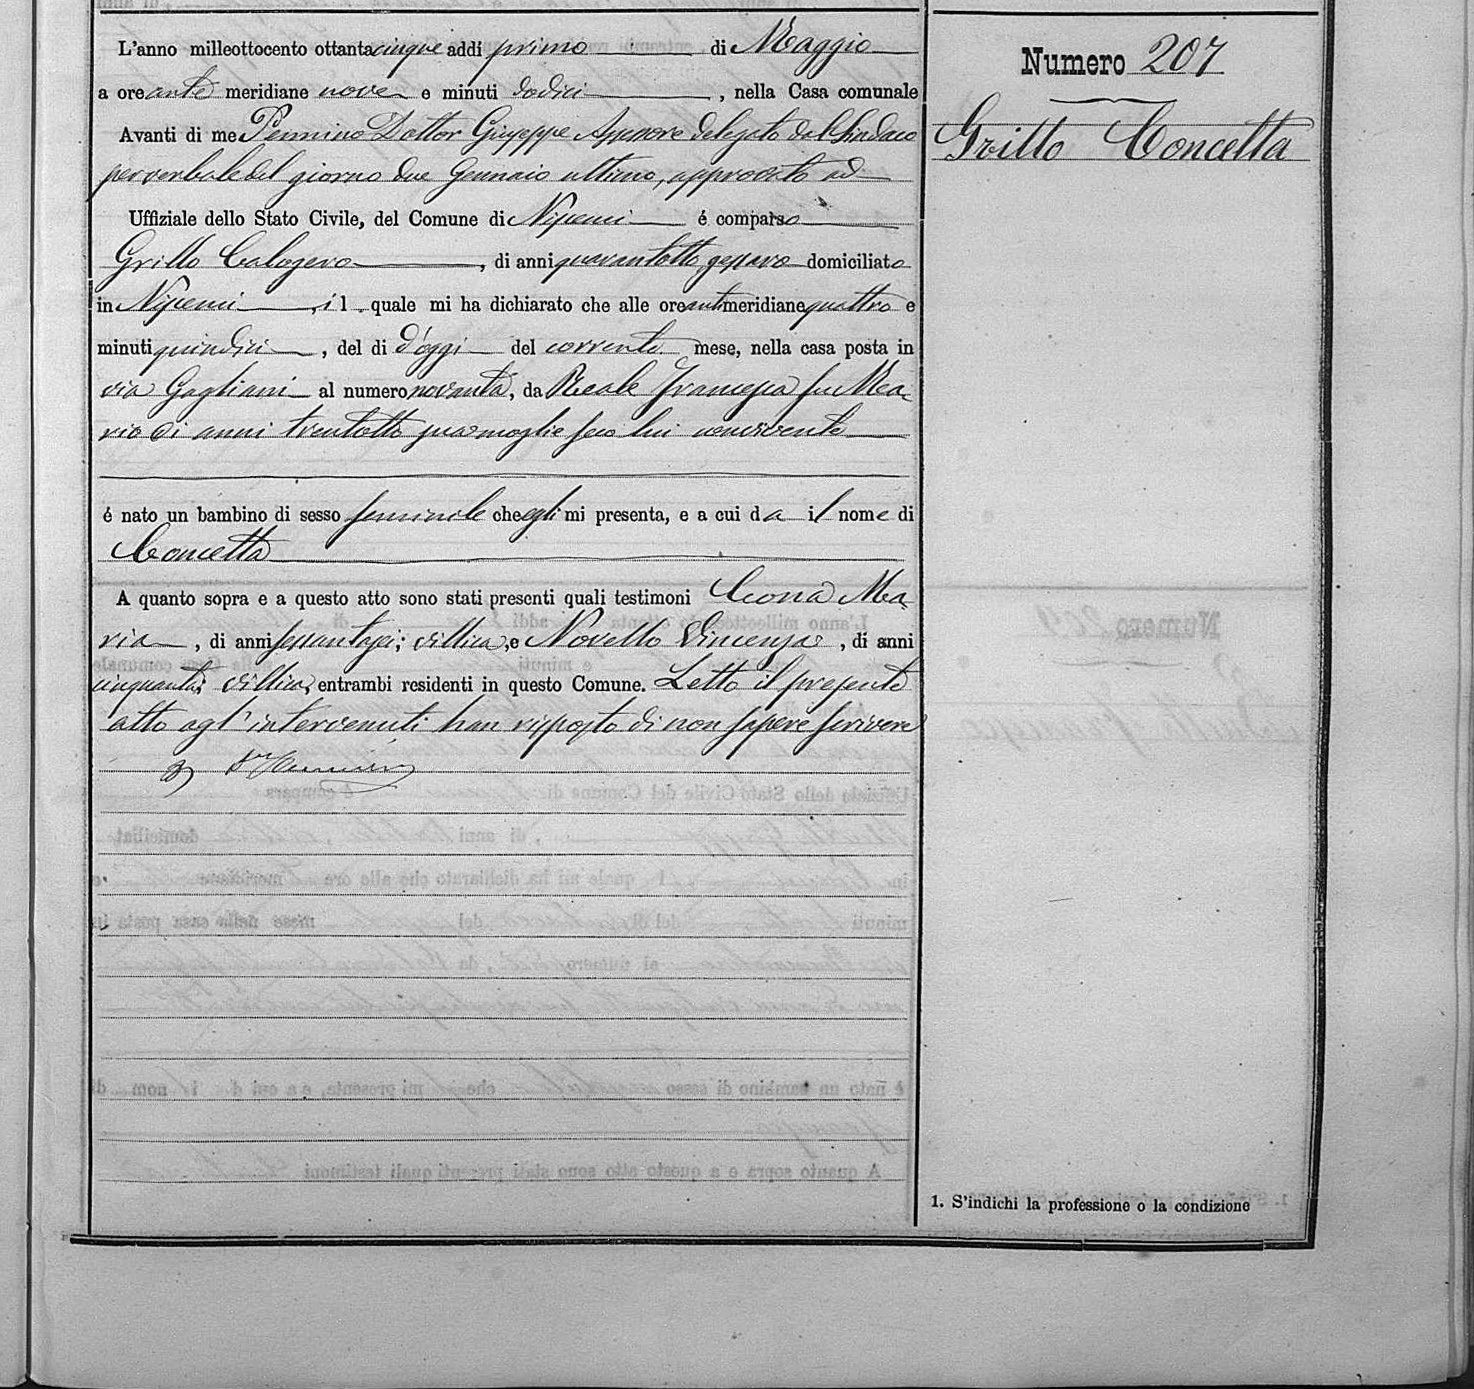 L'anno milleottocento ottantacinque addi primo di Maggio
a ore ante meridiane nove e minuti dodici, nella Casa comunale
Avanti di me Pennino Dottor Giuseppe Assessore delegato dal Sindaco
per verbale del giorno due Gennaio ultimo, approvato ad
Uffiziale dello Stato Civile, del Comune di Niscemi é comparso
Grillo Calogero, di anni quarantotto gessaro domiciliato
in Niscemi, il quale mi ha dichiarato che alle ore antmeridiane quattro e
minuti quindici, del di d'oggi del corrente mese, nella casa posta in
via Gagliani al numero novanta, da Reale Francesca fu Ma-
rio di anni trentotto sua moglie seco lui convivente
é nato un bambino di sesso feminile che egli mi presenta, e a cui da il nome di
Concetta
A quanto sopra e a questo atto sono stati presenti quali testimoni Cona Ma-
ria, di anni sessantasei; villica, e Novello Vincenza, di anni
cinquanta; villica, entrambi residenti in questo Comune. Letto il presente
atto agl'intervenuti han risposto di non sapere scrivere
Numero 207
Grillo Concetta
1. S'indichi la professione o la condizione